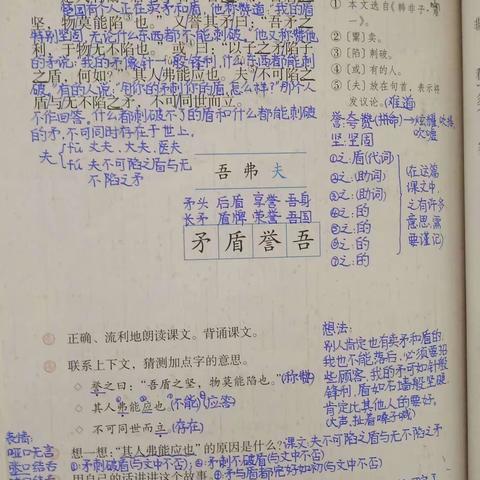 坚，物莫能陷也。”又誉其矛曰：“吾矛之
利，于物无不陷也。”或曰：“以子之矛陷子
之盾，何如？”其人弗能应也。夫不可陷之
盾与无不陷之矛，不可同世而立。
楚国有个人正在卖矛和盾，他称赞道：“我的盾
特别坚固，无论什么东西都不能刺破。”他又称赞他
的矛说：“我的矛像针一般锋利，什么东西都能刺
破。”有的人说：“用你的矛刺你的盾，怎么样？”那个人
不作回答，什么都刺破不了的盾和什么都能刺破
的矛，不可同时存在于世上。
夫
fū 丈夫、大夫、医夫
fú 夫不可陷之盾与无
不陷之矛
吾 弗 夫
矛头 后盾 享誉 吾身
长矛 盾牌 荣誉 吾国
矛 盾 誉 吾
① 本文选自《韩非子·难
一》。
② 〔鬻〕卖。
③ 〔陷〕刺破。
④ 〔或〕有的人。
⑤ 〔夫〕放在句首，表示将
发议论。
誉：夸赞
坚：坚固
①之：盾(代词)
②之：(助词)
③之：(助词)
④之：的
⑤之：的
⑥之：的
⑦之：的
(在这篇
课文中，
之有许多
意思，需
要谨记)
正确、流利地朗读课文。背诵课文。
联系上下文，猜测加点字的意思。
◇ 誉之曰：“吾盾之坚，物莫能陷也。”(称赞)
◇ 其人弗能应也。(不能)(应答)
◇ 不可同世而立。(存在)
想法：
别人肯定也有卖矛和盾的，
我也不能落后，必须要招
些顾客，我的矛可如针般
锋利，盾如石墙般坚硬，
肯定比其他人的要好。
(大声，扯着嗓子喊)
表情：
哑口无言
张口结舌
想一想：“其人弗能应也”的原因是什么？课文：夫不可陷之盾与无不陷之矛
①：矛刺破盾(与文中不否)；②：矛刺不破盾(与文中不否)
用自己的话讲讲这个故事。